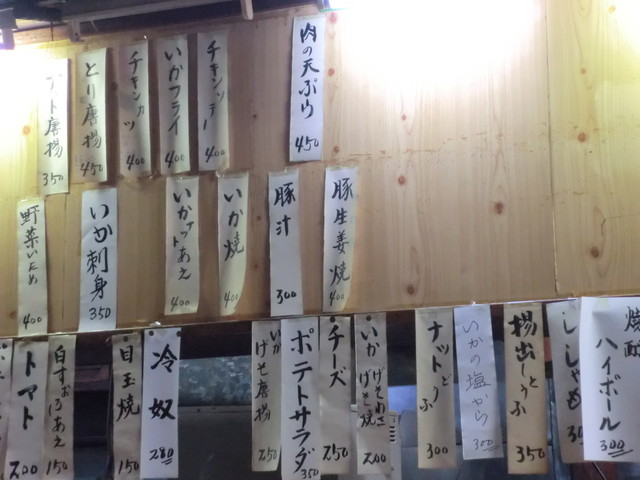 肉の天ぷら 450
チキンソテー 400
いかフライ 400
チキンカツ 400
とり唐揚 450
唐揚 350
豚生姜焼 400
豚汁 300
いか焼 400
いかナットあえ 400
いか刺身 350
野菜いため 400
焼酎ハイボール 300
ししゃも
揚出しとうふ 350
いかの塩から 300
ナットどうふ 300
いかげそわさ げそ焼 200
チーズ 250
ポテトサラダ 350
いかげそ唐揚 250
冷奴 280
目玉焼 150
白すおろあえ 150
トマト 200